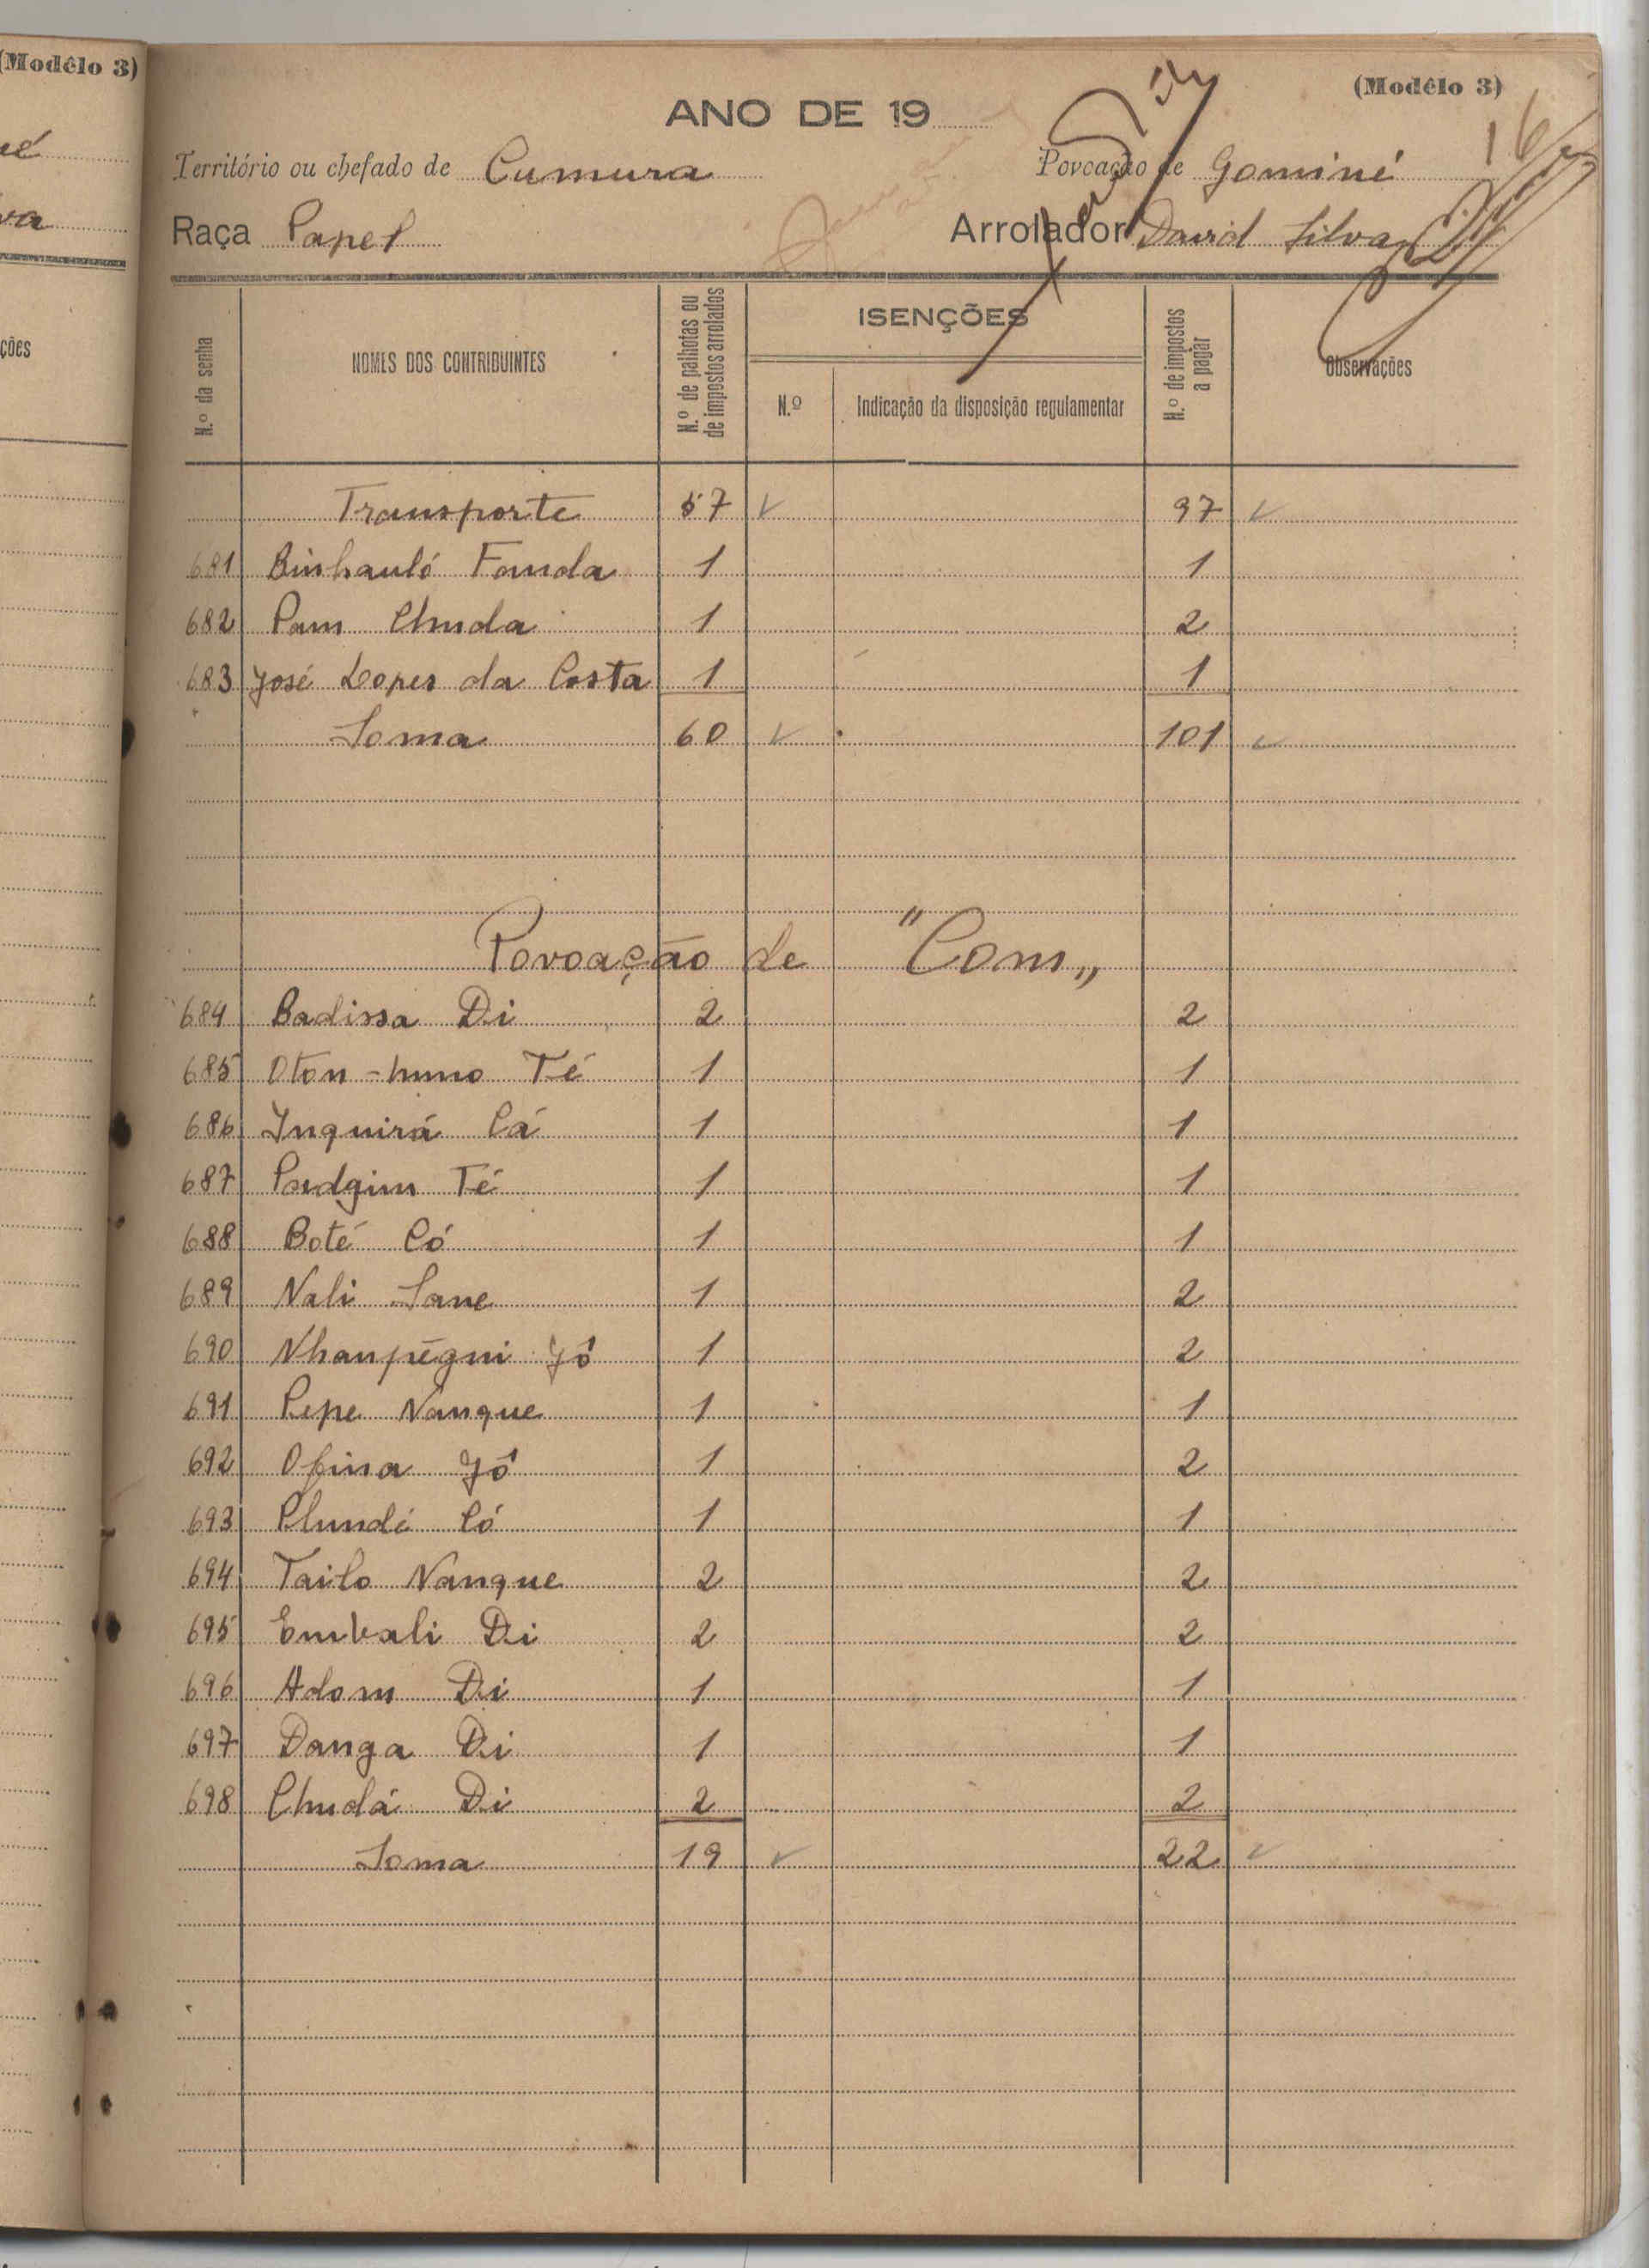 (Modêlo 3)
ué
va
ções
(Modêlo 3)
ANO DE 19
16
Território ou chefado de Cumura Povoação de Gominé
Raça Papel Arrolador David Silva
N.º da senha NOMES DOS CONTRIBUINTES N.º de palhotas ou de impostos arrolados ISENÇÕES N.º de impostos a pagar Observações
N.º Indicação da disposição regulamentar
Transporte 57 ✓ 97 ✓
681 Binhauló Fanda 1 1
682 Pam Chuda 1 2
683 José Lopes da Costa 1 1
Soma 60 ✓ 101 ✓
Povoação de "Com„
684 Badissa Di 2 2
685 Oton-humo Té 1 1
686 Inquirá Cá 1 1
687 Padgim Té 1 1
688 Boté Có 1 1
689 Nali Sane 1 2
690 Nhanpégni Jô 1 2
691 Pepe Nanque 1 1
692 Ofina Jô 1 2
693 Chundé Có 1 1
694 Tailo Nanque 2 2
695 Embali Di 2 2
696 Adom Di 1 1
697 Danga Di 1 1
698 Chudá Di 2 2
Soma 19 ✓ 22 ✓